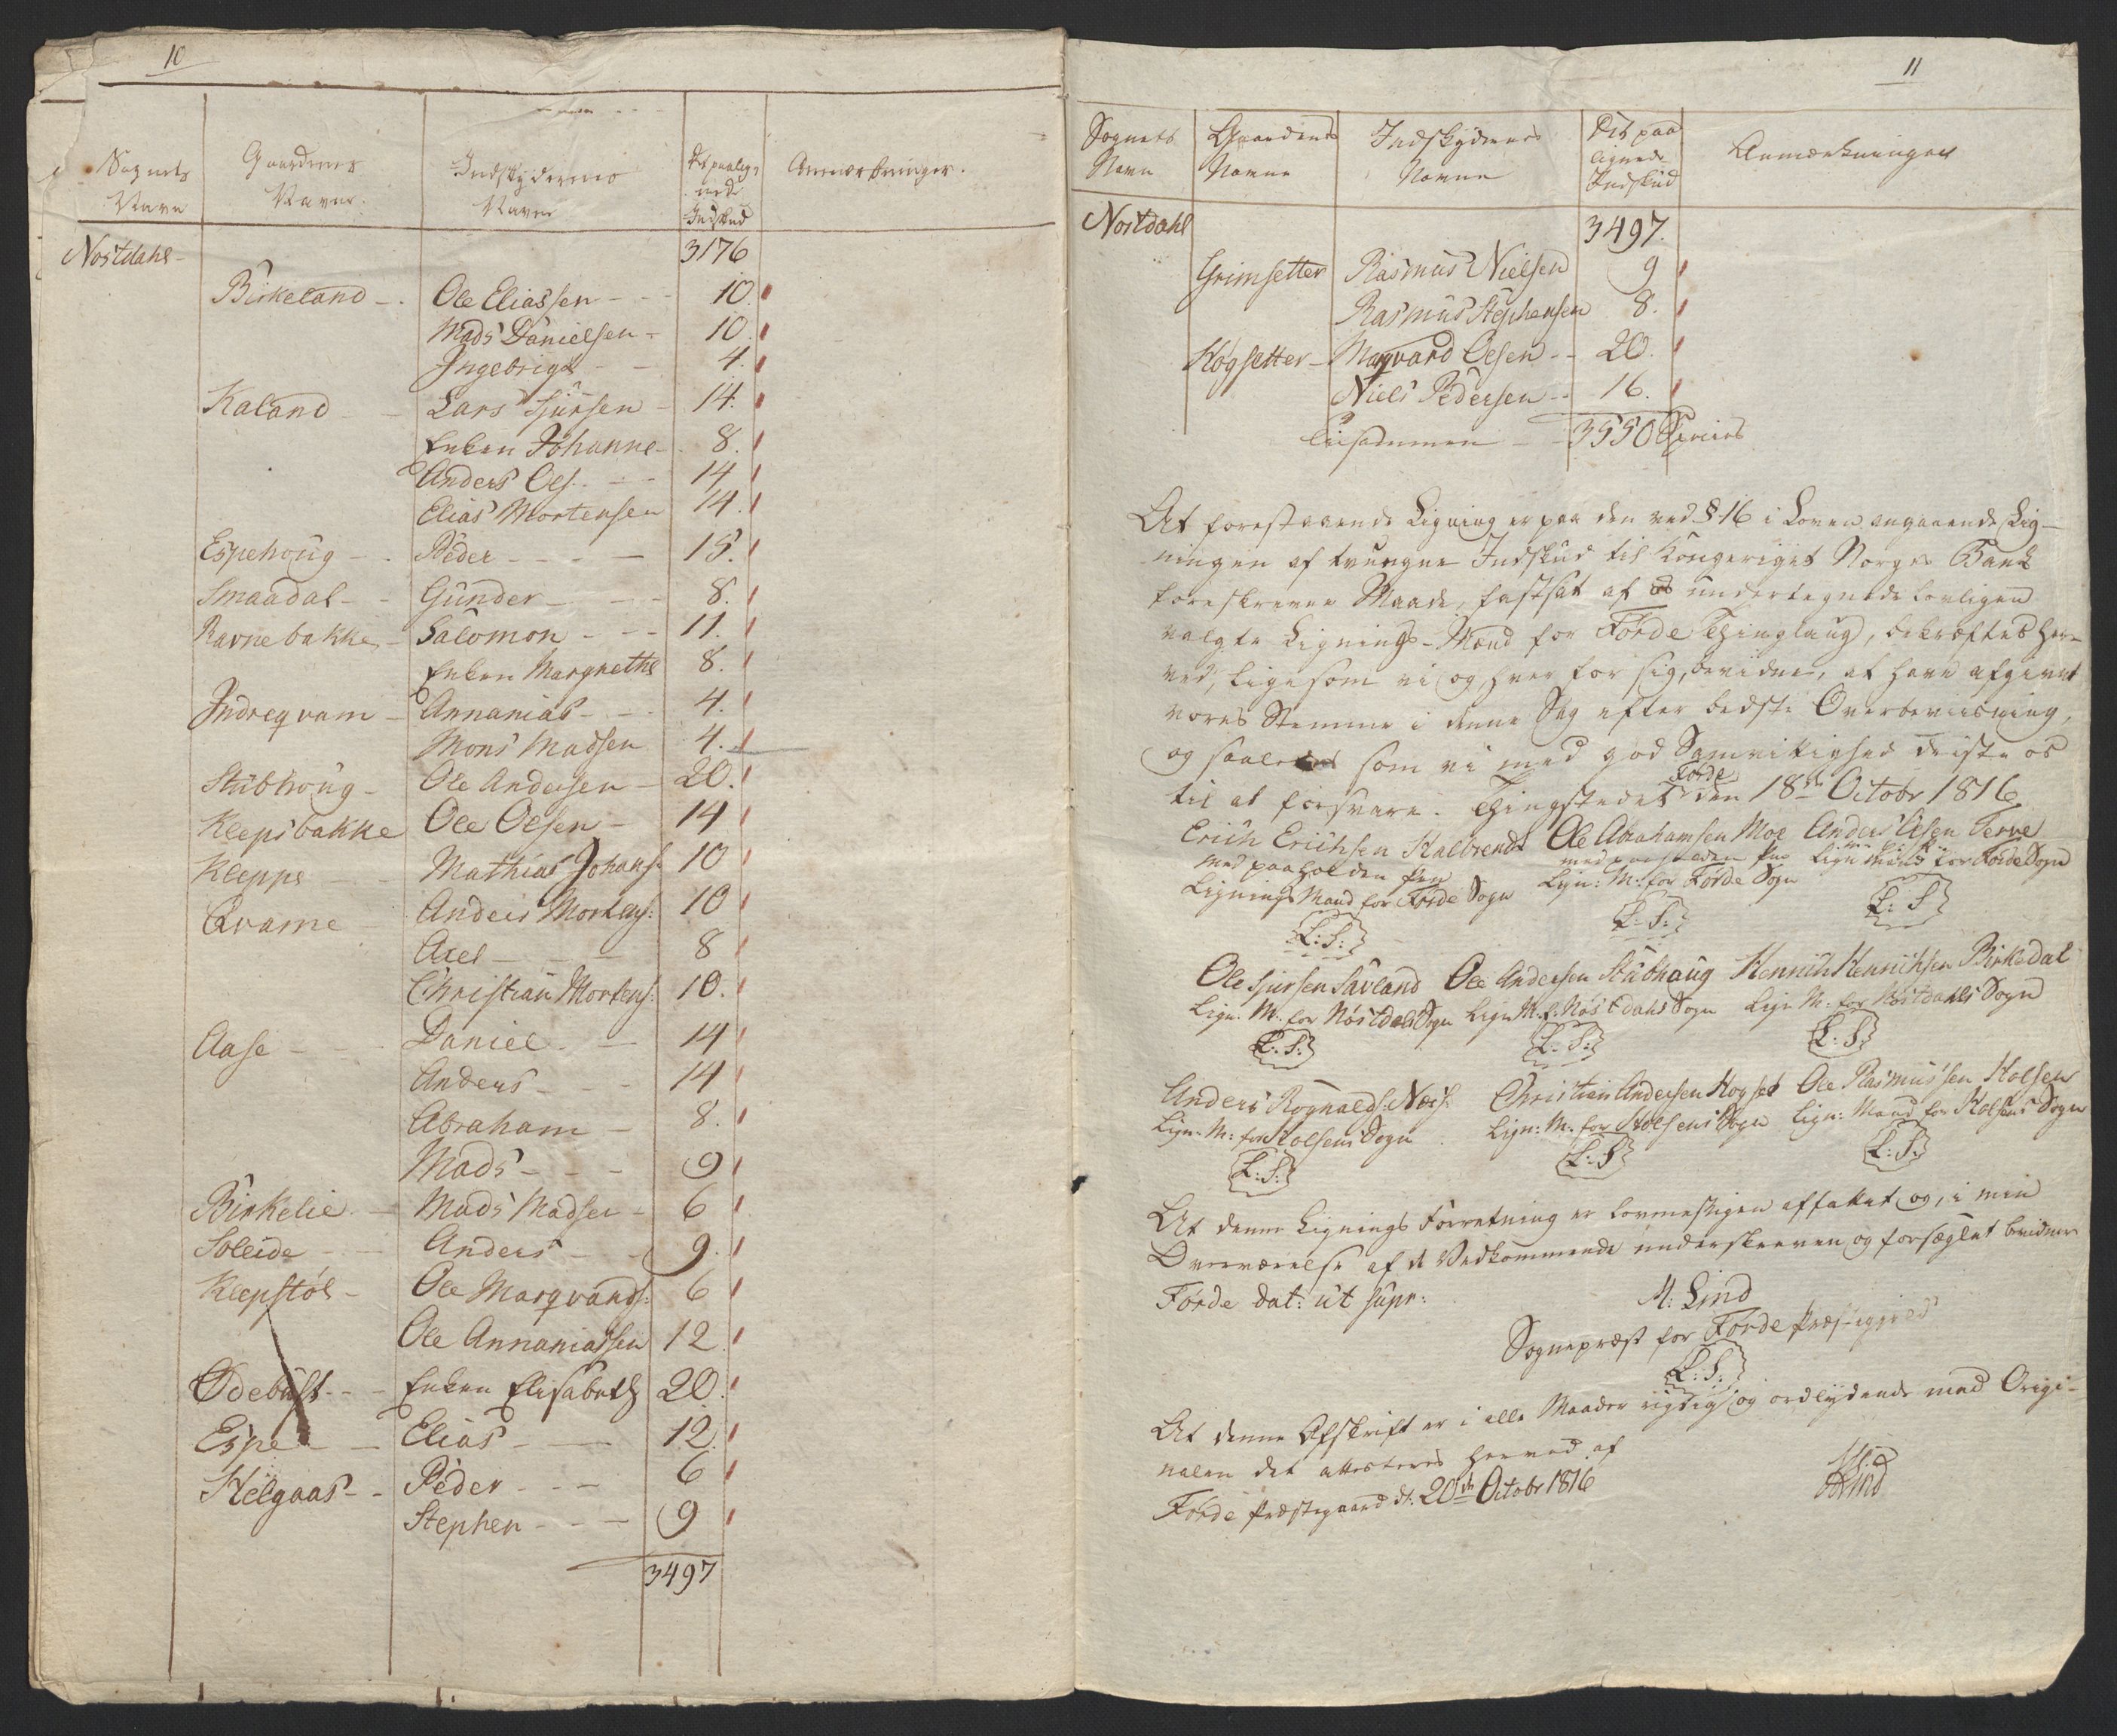 10
Sognets Navn
Gaardenes Navne.
Indskydernes Navne
Det paalignede Indskud
Anmærkninger.
Nostdahl - 3176
Birkeland - Ole Eliassen - - 10.
Mads Danielsen - 10.
Ingebrigt - - 4.
Kaland - - Lars Sjursen - 14.
Enken Johanne - 8.
Anders Ols. - - 14
Elias Mortensen 14.
Espehoug - - Peder - - - 15.
Smaadal - - Gunder - - - 8.
Ravnebakke - Salomon - - - 11.
Enken Margrethe 8.
Indreqvam - Annanias - - 4.
Mons Madsen 4.
Stubhoug - Ole Andersen - 20.
Klepsbakke Ole Olsen - 14
Kleppe - - Mathias Johans: 10
Qvame - Anders Mortens: 10
Axel - - - 8
Christian Mortens: 10.
Aase - - - Daniel - - 14
Anders - - - 14
Abraham - 8.
Mads - - - 9
Birkelie - Mads Madsen - 6
Soleide - - Anders - - 9.
Klepstøl - Ole Marqvands: 6
Ole Annaniassen 12
Ødebust - - Enken Elisabeth 20.
Espe - - Elias - - 12.
Helgaas - - Peder - - - 6
Stephen - - - 9
3497
11
Sognets Navn
Gaardenes Navne
Indskydernes Navne
Det paalignede Indskud
Anmærkninger
Nostdahl 3497.
Grimsetter Rasmus Nielsen 9
Rasmus Stephensen 8.
Høgsetter - Marqvard Olsen - - 20.
Niels Pedersen - - 16.
Tilsammen - - 3550 Species
At forestaaende Ligning er paa den ved § 16 i Loven angaaende Lig-
ningen af tvungne Indskud til Kongeriget Norges Bank
foreskrevne Maade, fastsat af os undertegnede lovligen
valgte Lignings-Mænd for Førde Thinglaug, bekræftes her-
ved, ligesom vi og hver for sig, bevidne, at have afgivet
vores Stemme i denne Sag efter bedste Overbeviisning,
og saaledes som vi med god Samvittighed driste os
til at forsvare. Thingstedet Førde den 18de Octobr 1816
Erich Erichsen Halbrendt Ole Abrahamsen Moe Anders Olsen Ferve
med paaholden Pen med paaholden Pen Lign: Mand for Førde Sogn
Lignings Mand for Førde Sogn Lign: M: for Førde Sogn
L: S: L: S: L: S
Ole Sjursen Savland Ole Andersen Stubhaug Henrich Henrichsen Birkedal
Lign: M: for Nøstdals Sogn Lign M. f. Nøstdahls Sogn Lign M: for Nøstdahls Sogn
L: S: L: S: L: S
Anders Rognalds: Næss: Christian Andersen Hogset Ole Rasmussen Holsen
Lign: M: for Holsens Sogn Lign: M: for Holsens Sogn Lign: Mand for Holsens Sogn
L: S: L: S L: S:
At denne Lignings Forretning er lovmessigen affattet og, i min
Overværelse af de Vedkommende underskreven og forseglet bevidner
Førde dat: ut supr:
M: Lind
Sognepræst for Førde Præstegield
L: S:
At denne Afskrift er i alle Maader rigtig og ordlydende med Origi-
nalen det attesteres herved af
Førde Præstegaard dt: 20de Octobr 1816
MLind